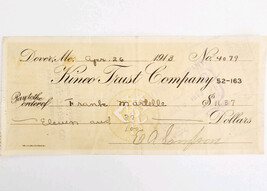 Dover, Me. Apr. 26 1913 No. 4079
Kineo Trust Company 52-163
Pay to the order of Frank $11.07
Eleven and Dollars